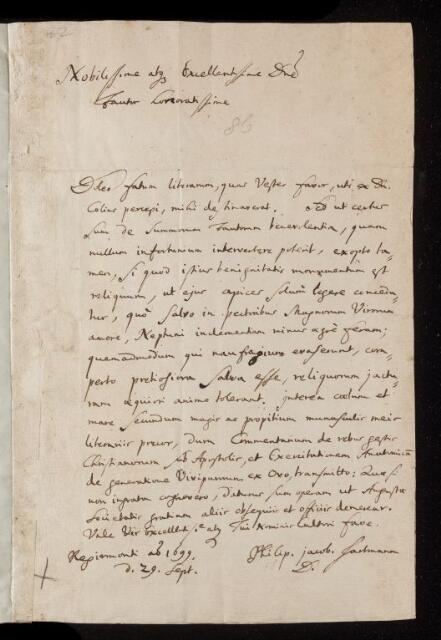 Nobilissime atq Excellentissime Dne
Fautor honoratissime
86
Doleo fatum literarum, quas Vester favor, uti ex Dn.
percepi, mihi destinaverat. Sed ut certus
sum de summorum Fautorum benevolentia, quam
nullum infortunium intervertere potest, exopto ta-
men, si quod istius benignitatis monumentum est
reliquum, ut ejus apices solum legere conceda-
tur, quo salvo in pectoribus Magnorum Virorum
amore, Neptuni inclementiam minus aegre feram;
quemadmodum qui naufragium evaserunt, com-
perto pretiosiora salva esse, reliquorum jactu-
ram aequiori animo tolerant. Interea coelum et
mare secundum magis ac propitium munusculis meis
literariis precor, dum Commentarium de rebus gestis
Christianorum sub Apostolis, et Exercitationem Anatomicam
de generatione Viviparorum ex Ovo, transmitto: Quae si
non ingratum cognovero, daturus sum operam ut Augustae
Societatis gratiam aliis obsequiis et officiis demerear.
Vale Vir Excellentiss.e atq Tui Nominis cultori fave.
Regiomonti a̅o 1699.
d. 29. Sept.
Philip. Jacob. Hartmann
D.